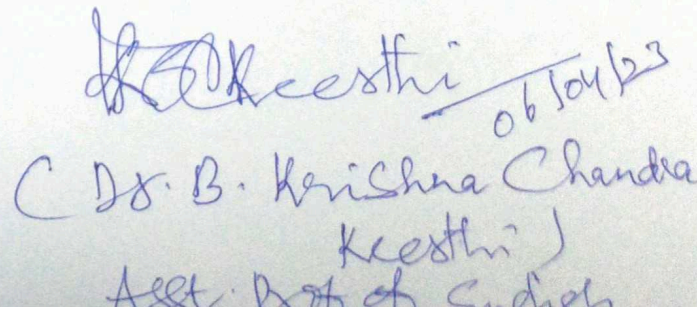 KBCKeerthi 06/04/23
( Dr. B. Krishna Chandra
Keerthi )
Asst. Prof of